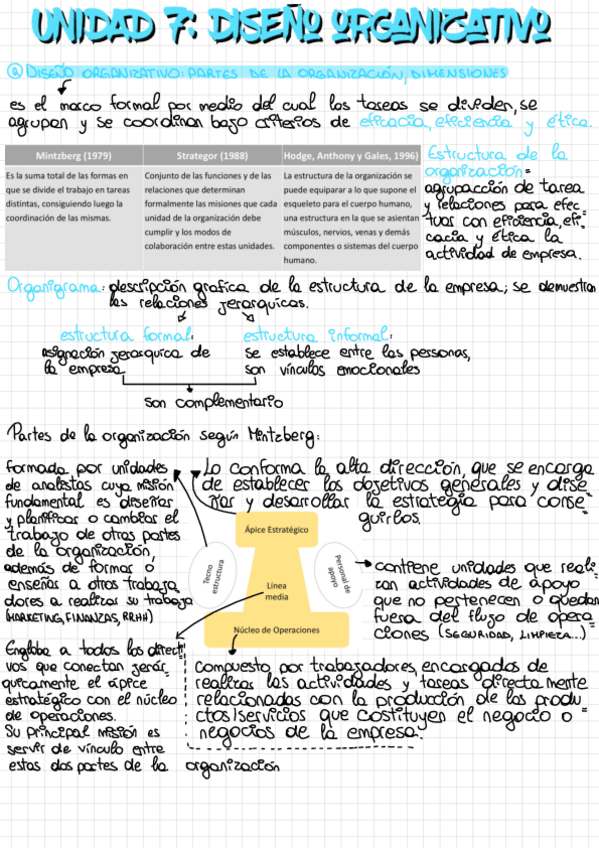 UNIDAD 7: DISEÑO ORGANIZATIVO
@ DISEÑO ORGANIZATIVO: PARTES DE LA ORGANIZACIÓN, DIMENSIONES
es el marco formal por medio del cual las tareas se dividen, se
agrupan y se coordinan bajo criterios de eficacia, eficiencia y ética.
Mintzberg (1979)
Es la suma total de las formas en
que se divide el trabajo en tareas
distintas, consiguiendo luego la
coordinación de las mismas.
Strategor (1988)
Conjunto de las funciones y de las
relaciones que determinan
formalmente las misiones que cada
unidad de la organización debe
cumplir y los modos de
colaboración entre estas unidades.
Hodge, Anthony y Gales, 1996)
La estructura de la organización se
puede equiparar a lo que supone el
esqueleto para el cuerpo humano,
una estructura en la que se asientan
músculos, nervios, venas y demás
componentes o sistemas del cuerpo
humano.
Estructura de la
organización=
agrupacción de tarea
y relaciones para efec-
tuar con eficiencia, efi-
cacia y ética la
actividad de empresa.
Organigrama: descripción grafica de la estructura de la empresa; se demuestran
las relaciones jerarquicas.
estructura formal:
asignación jerarquica de
la empresa
estructura informal:
se establece entre las personas,
son vínculos emocionales
son complementario
Partes de la organización según Mintzberg:
formada por unidades
de analistas cuya misión
fundamental es diseñar
y planificar o cambiar el
trabajo de otras partes
de la organización,
además de formar ó
enseñar a otros trabaja
dores a realizar su trabajo
(MARKETING, FINANZAS, RRHH)
Lo conforma la alta dirección, que se encarga
de establecer los objetivos generales y dise-
ñar y desarrollar la estrategia para conse-
guirlos.
Ápice Estratégico
Tecno
estructura
Línea
media
Personal de
apoyo
Núcleo de Operaciones
contiene unidades que reali-
zan actividades de apoyo
que no pertenecen o quedan
fuera del flujo de opera-
ciones (SEGURIDAD, LIMPIEZA...)
Engloba a todos los directi
vos que conectan jerár-
quicamente el ápice
estratégico con el núcleo
de operaciones.
Su principal misión es
servir de vínculo entre
estas dos partes de la organización
compuesto por trabajadores, encargados de
realizar las actividades y tareas directa mente
relacionadas con la producción de los produ-
ctos/servicios que costituyen el negocio o
negocios de la empresa.